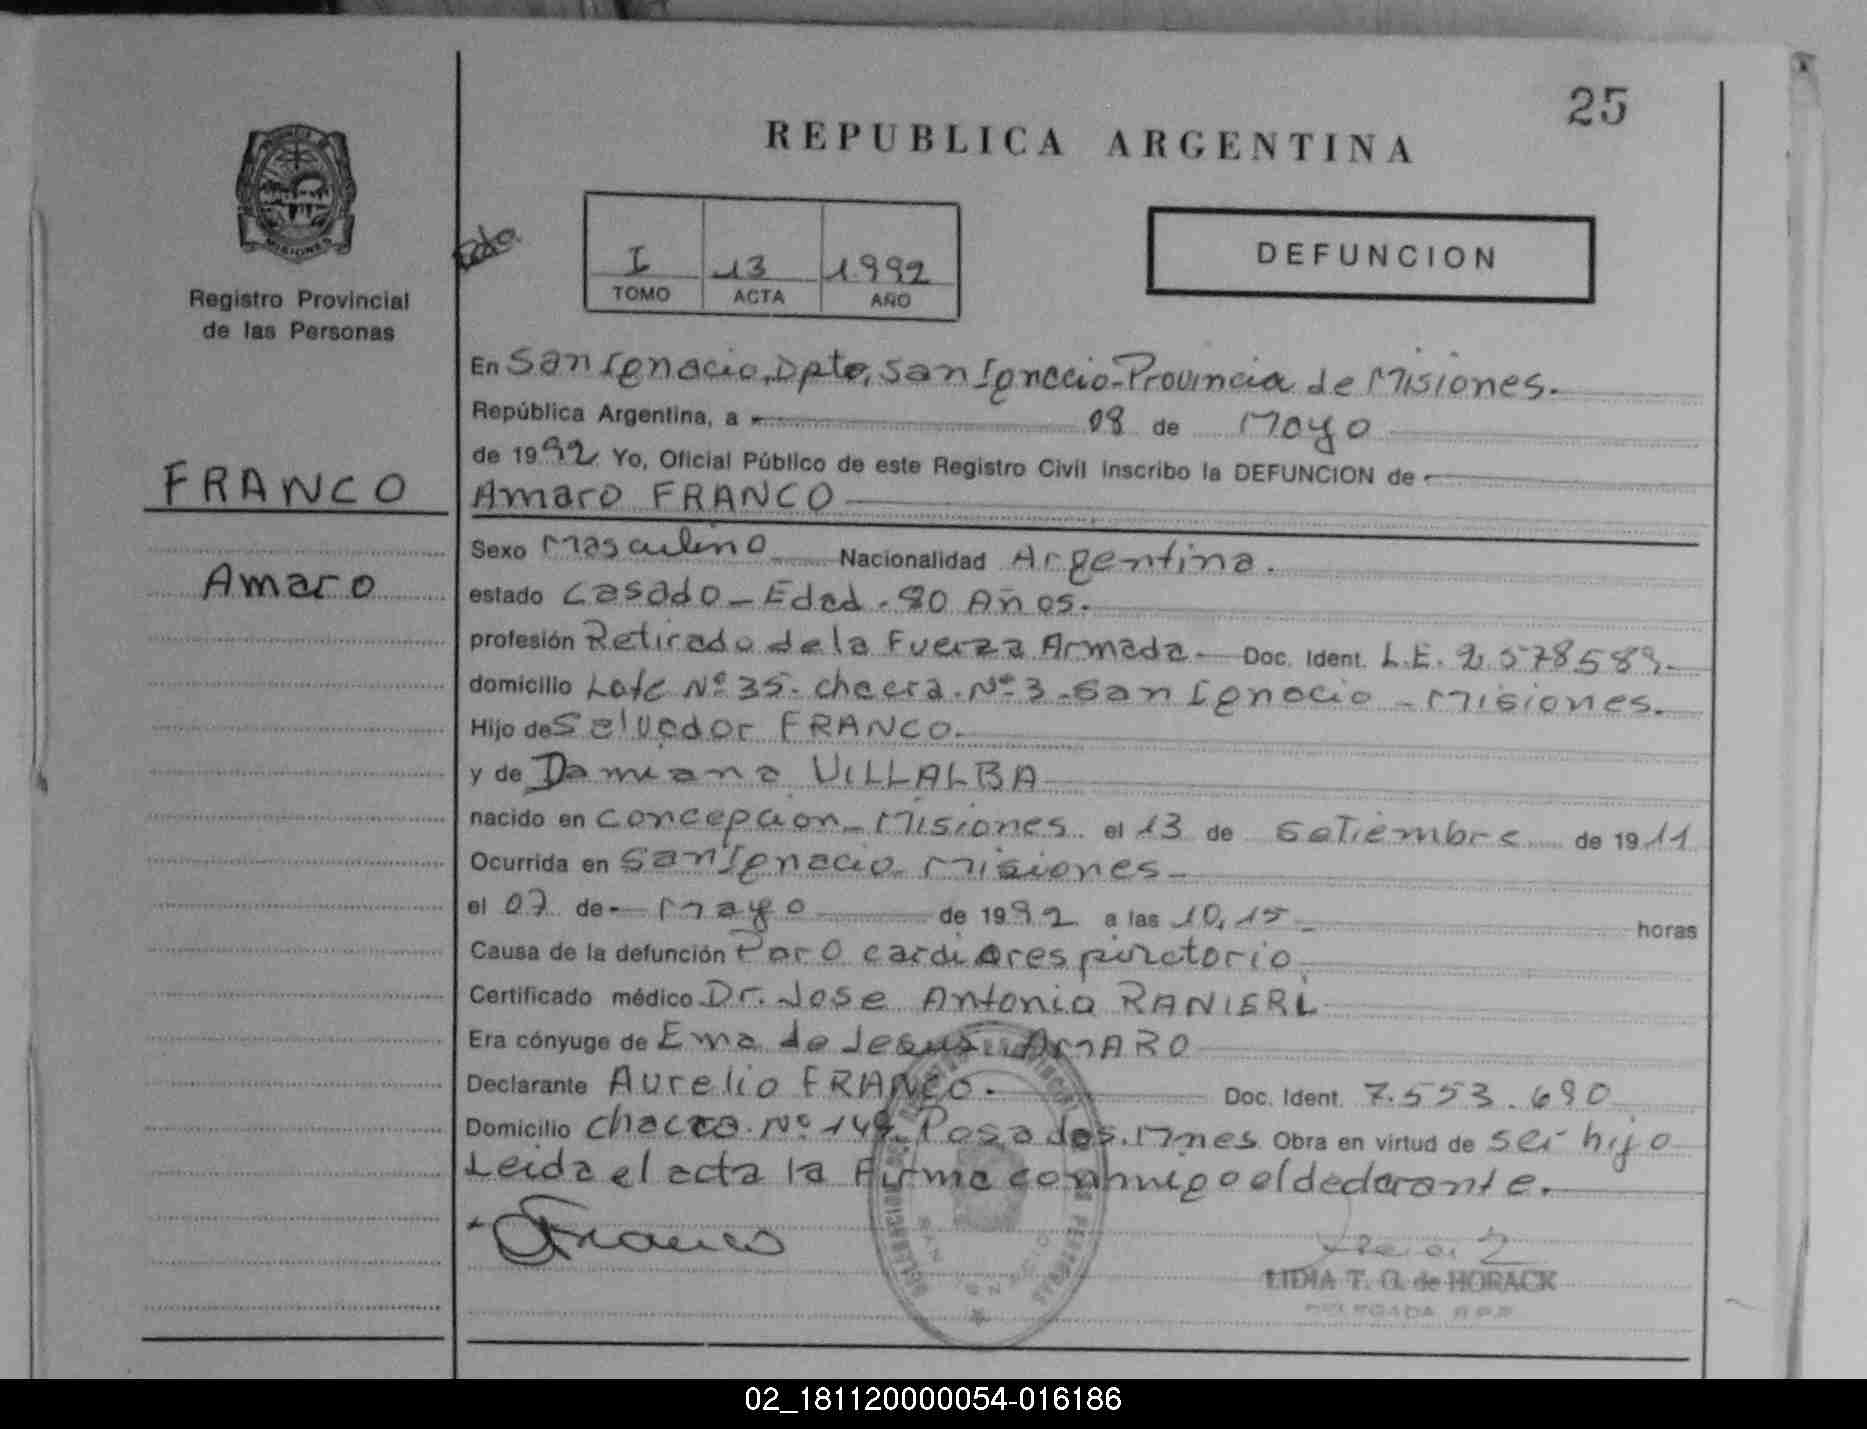 25
REPUBLICA ARGENTINA
MISIONES
Registro Provincial
de las Personas
I 13 1992
TOMO ACTA AÑO
DEFUNCION
FRANCO
Amaro
En San Ignacio, Dpto, San Ignacio - Provincia de Misiones.
República Argentina, a 08 de Mayo
de 1992 Yo, Oficial Público de este Registro Civil Inscribo la DEFUNCION de
Amaro FRANCO
Sexo Masculino Nacionalidad Argentina.
estado Casado - Edad - 80 Años.
profesión Retirado de la Fuerza Armada - Doc. Ident. L.E. 2.578589.
domicilio Lote Nº 35 - chacra - Nº 3 - San Ignacio - Misiones.
Hijo de Salvador FRANCO.
y de Damiana VILLALBA
nacido en Concepcion - Misiones el 13 de Setiembre de 1911
Ocurrida en San Ignacio Misiones
el 07 de Mayo de 1992 a las 10,15 horas
Causa de la defunción Paro cardiorespiratorio
Certificado médico Dr. Jose Antonio RANIERI
Era cónyuge de Ema de Jesus AMARO
Declarante Aurelio FRANCO. Doc. Ident. 7.553.690
Domicilio Chacra Nº 149 - Posadas. Mnes Obra en virtud de ser hijo
Leida el acta la Firma conmigo el declarante.
Franco
SAN IGNACIO
LIDIA T. G. de HORACK
DELEGADA R.P.P.
02_181120000054-016186